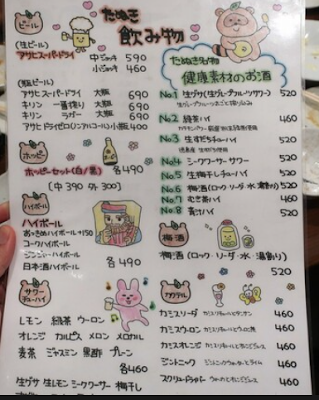 たぬき 飲み物
ビール
(生ビール)
アサヒスーパードライ 中ジョッキ 590
小ジョッキ 460
(瓶ビール)
アサヒスーパードライ 大瓶 690
キリン 一番搾り 大瓶 690
キリン ラガー 大瓶 690
アサヒドライゼロ(ノンアルコール)小瓶 400
ホッピー
ホッピーセット(白/黒) 各490
[中390 外300]
ハイボール
ハイボール
コークハイボール
ジンジャーハイボール
日本酒ハイボール 各490
サワー
チューハイ
レモン 緑茶 ウーロン
オレンジ カルピス メロン
麦茶 ジャスミン 黒酢 プレーン
各460
生グサ 生レモン シークワーサー 梅干し
たぬき名物
健康素材のお酒
No.1 生グサ(生グレープフルーツサワー) 520
No.2 緑茶ハイ 460
No.3 生すだちチューハイ 520
No.4 シークワーサーサワー 520
No.5 生梅干しチューハイ 520
No.6 梅酒(ロック・ソーダ・水・湯割り) 520
No.7 むぎ茶ハイ 460
No.8 青汁ハイ 520
梅酒
梅酒(ロック・ソーダ・水・湯割り)
520
カクテル
カシスソーダ 460
カシスウーロン 460
カシスオレンジ 460
ジントニック 460
スクリュードライバー 460